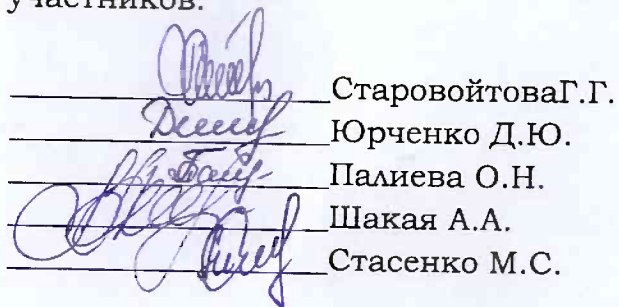 участников.
СтаровойтоваГ.Г.
Юрченко Д.Ю.
Палиева О.Н.
Шакая А.А.
Стасенко М.С.